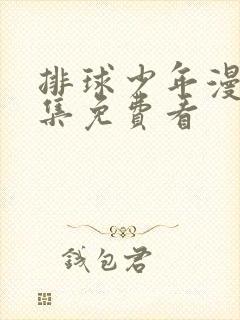 排球少年漫
集免費看
錢包君